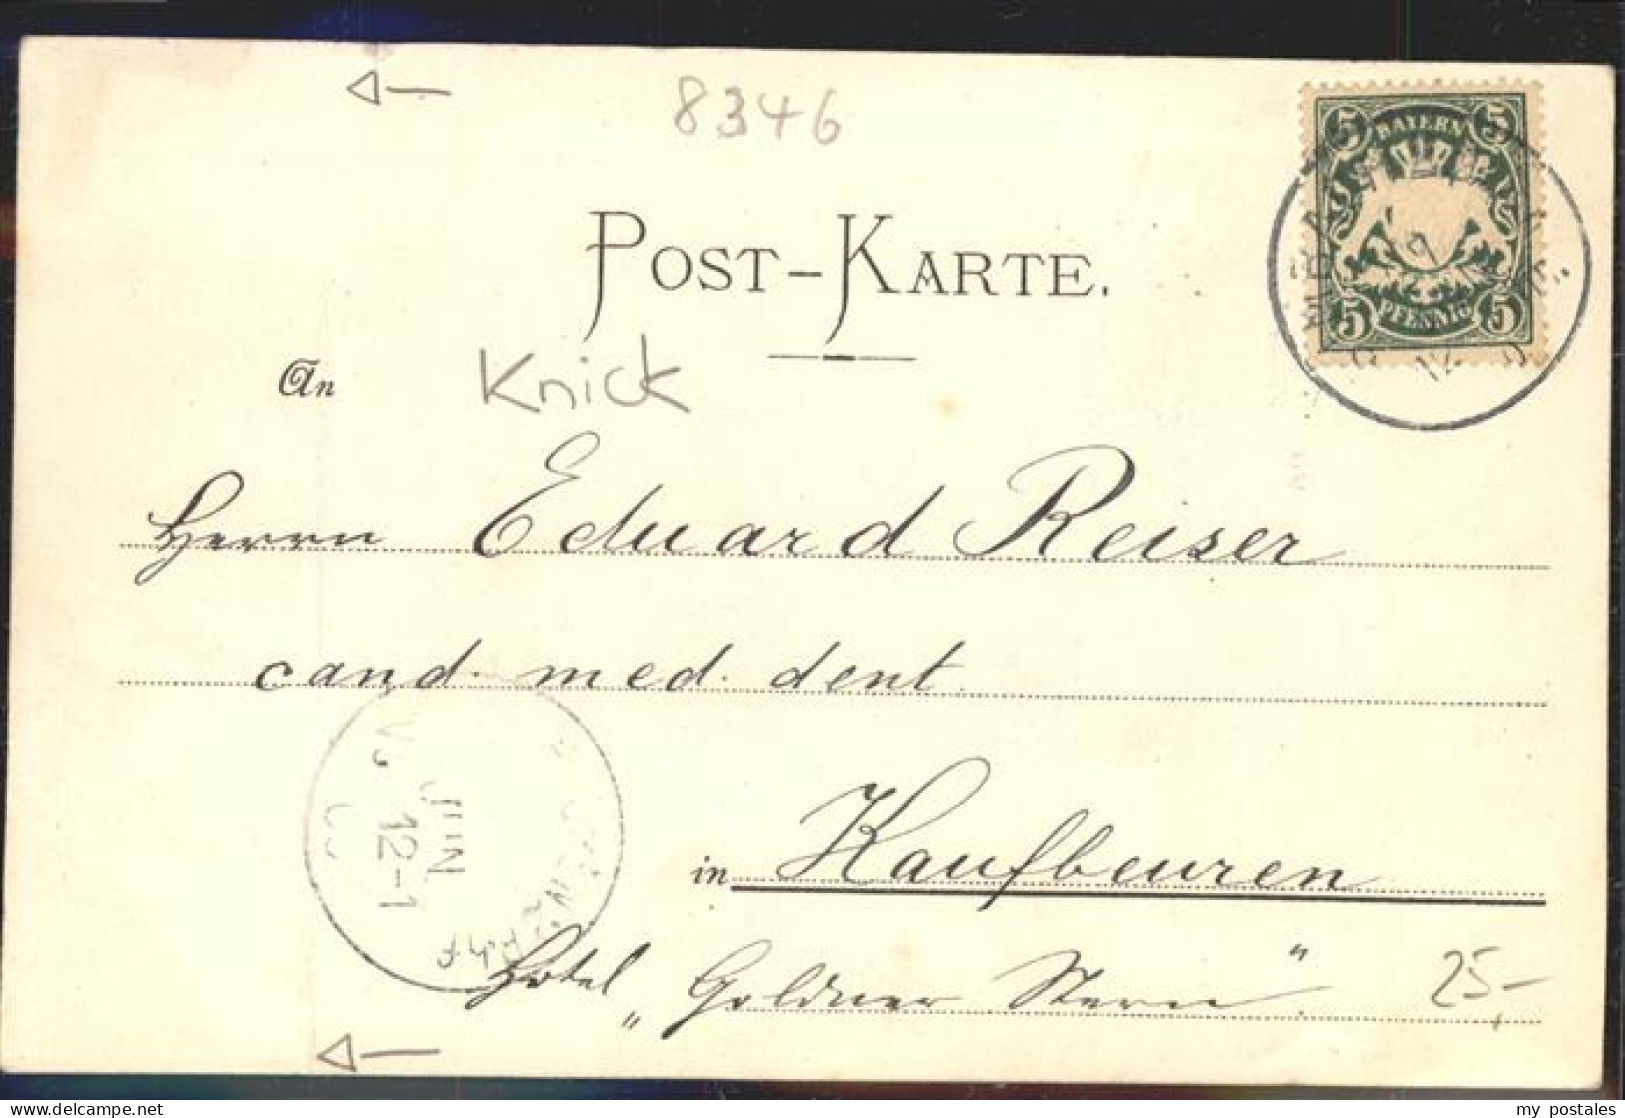 8346
5 BAYERN 5
5 PFENNIG 5
POST-KARTE.
An
Knick
Herrn Eduard Reiser
cand. med. dent.
in Kaufbeuren
Hotel „Goldner Stern".
25,-
JUN
12-1
my postales